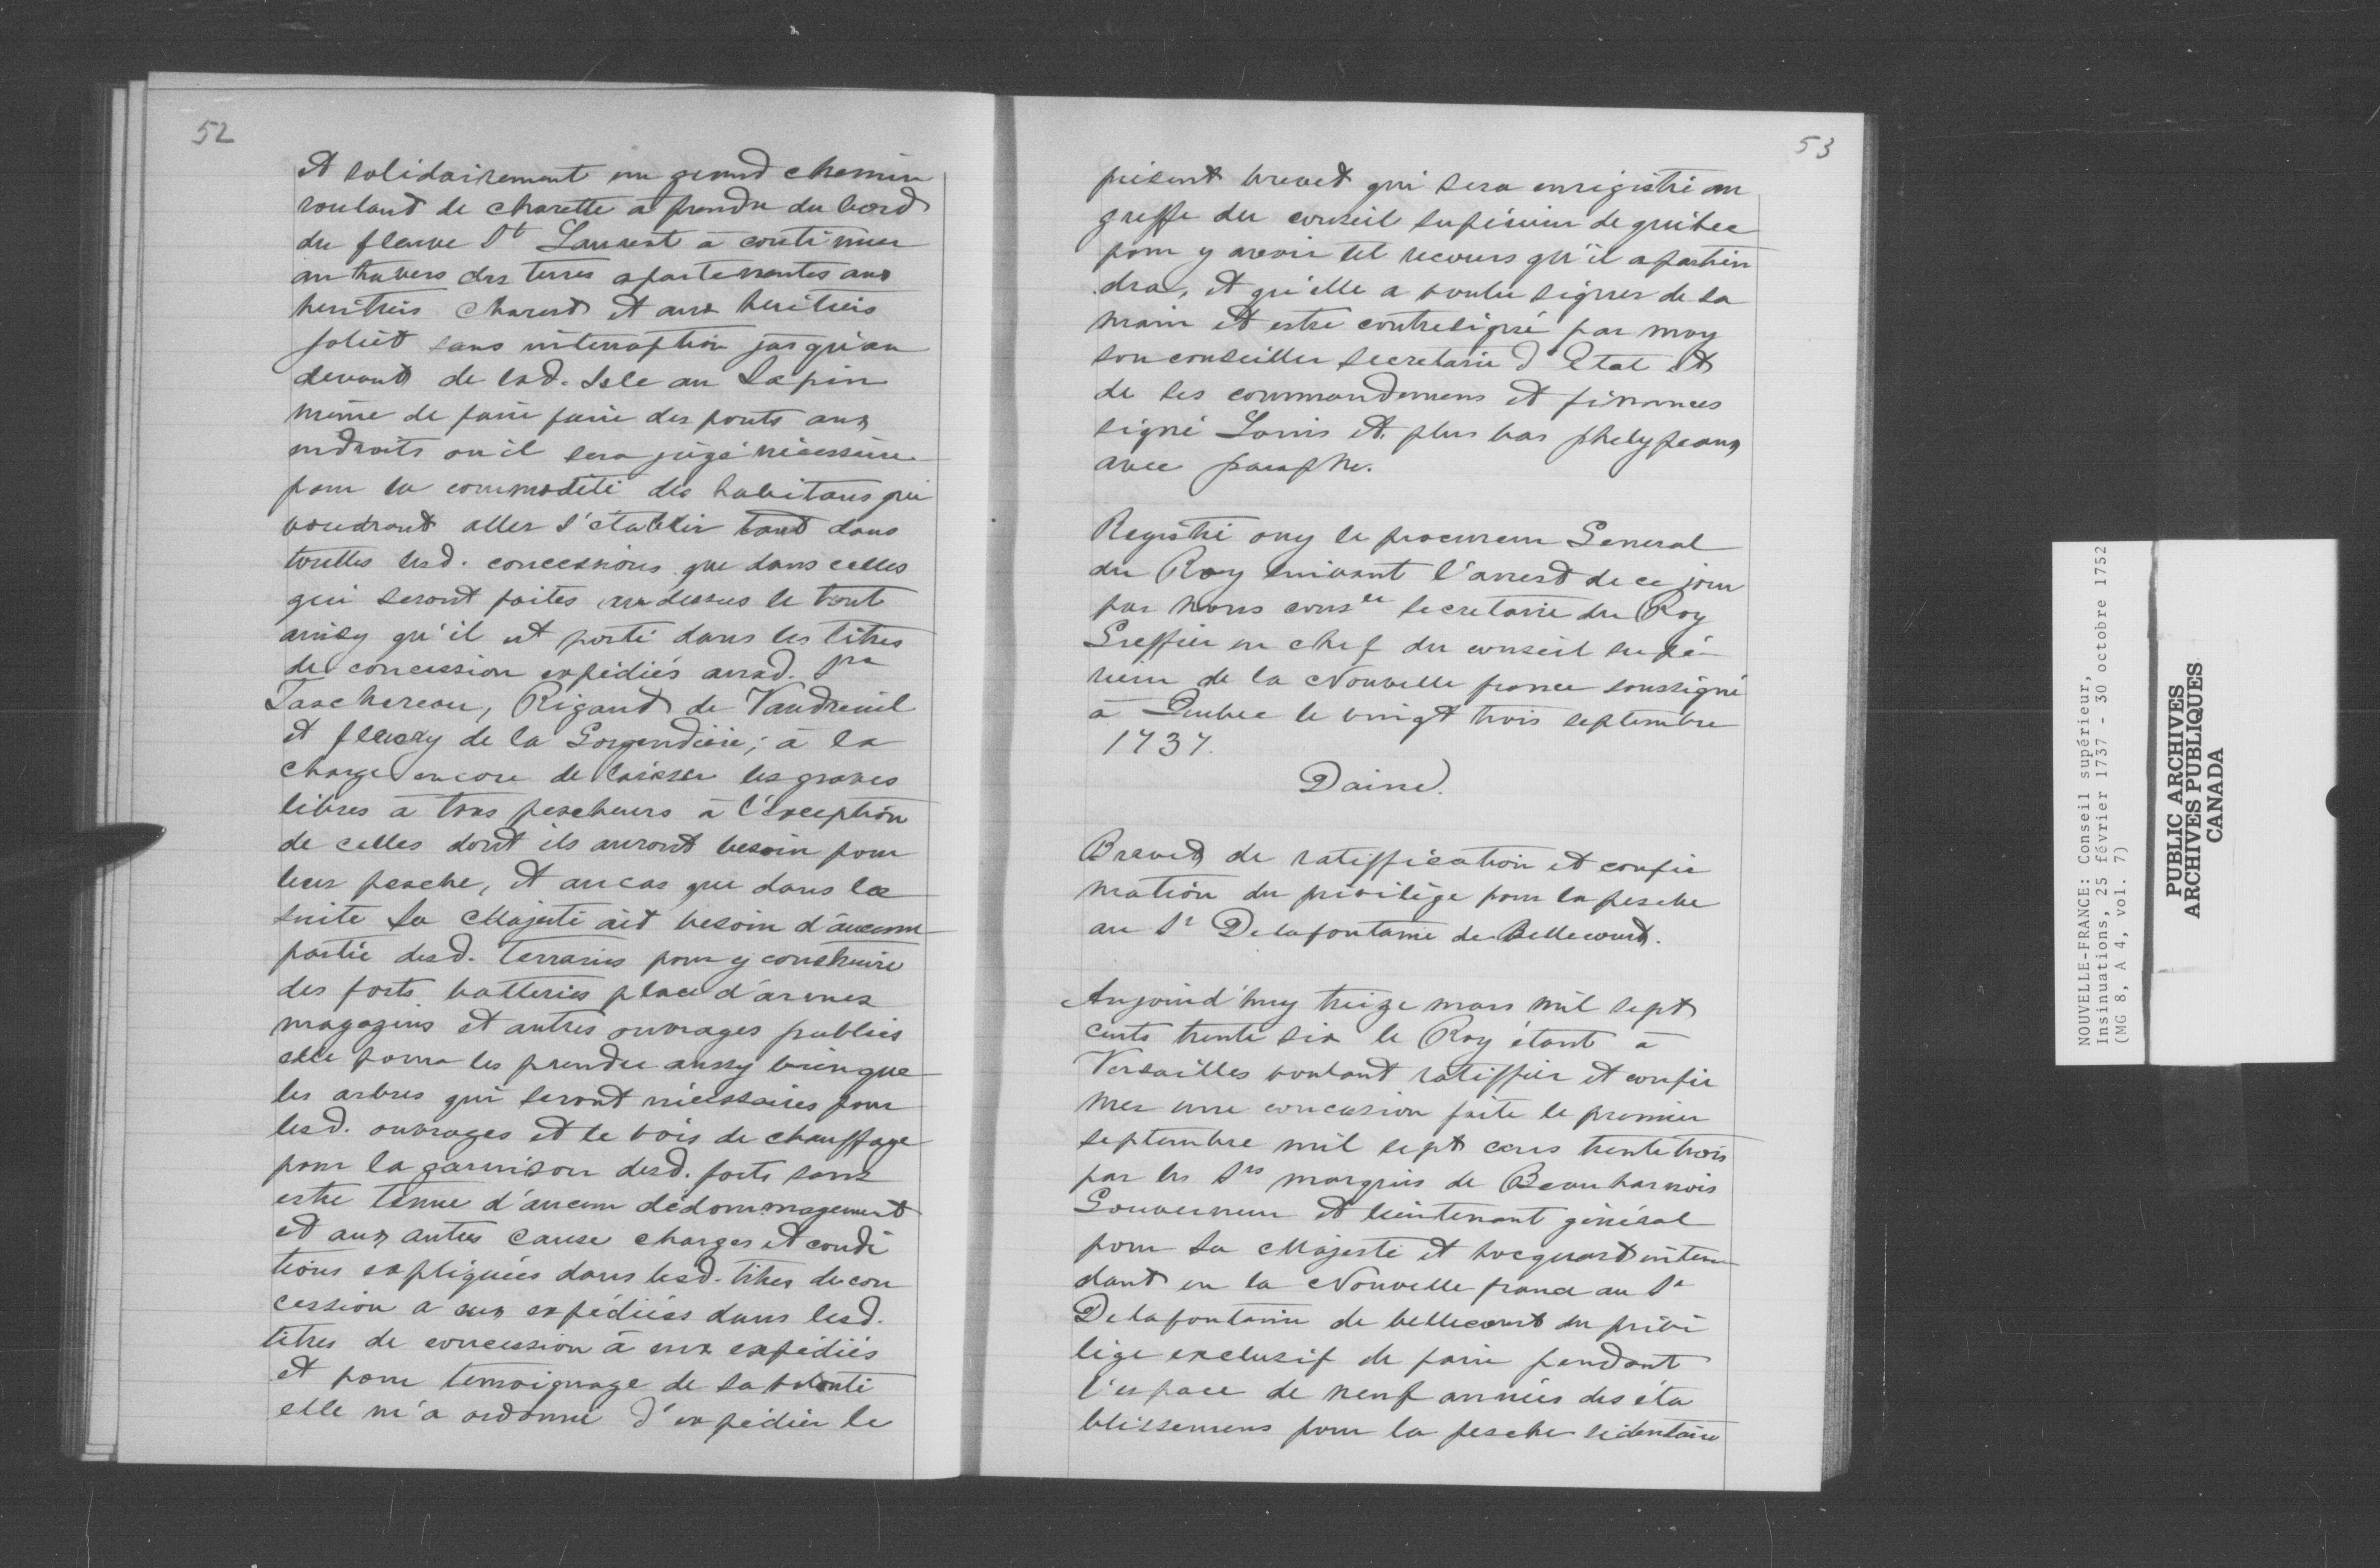 52
et solidairement un grand chemin
roulant de charette a prendre du bord
du fleuve St Laurent à continuer
au travers des terres apartenantes aux
heritiers Charest et aux heritiers
Joliet sans interruption jusqu'au
devant de lad. Isle au Sapin
même de faire faire des ponts aux
endroits ou il sera jugé nécessaire
pour la commodité des habitans qui
voudront aller s'établir tant dans
touttes lesd. concessions que dans celles
qui seront faites au dessus le tout
ainsy qu'il est porté dans les titres
de concession expédiés auxd. Srs
Taschereau, Rigaud de Vaudreuil
et fleury de la Gorgendiére; à la
charge encore de laisser les graves
libres à tous pescheurs à l'éxception
de celles dont ils auront besoin pour
leur pesche, et au cas que dans la
suite Sa Majesté ait besoin d'aucune
partie desd. terrains pour y construire
des forts batteries place d'armes
magazins et autres ouvrages publics
elle pourra les prendre aussy bien que
les arbres qui seront nécessaires pour
lesd. ouvrages et le bois de chauffage
pour la garnison desd. forts sans
estre tenue d'aucun dédommagement
et aux autres cause charges et condi
tions expliquées dans lesd. titres de con
cession a eux expédiées dans lesd.
titres de concession à eux expédiés
et pour temoignage de sa volonté
elle m'a ordonné d'expédier le
53
présent brevet qui sera enrigistré au
greffe du conseil supérieur de quebec
pour y avoir tel recours qu'il apartien
dra, et qu'elle a voulu signer de sa
main et estre contresigné par moy
son conseiller secretaire d'Etat et
de ses commandemens et finances
signé Louis et plus bas phelypeaux
avec paraphe.
Registré ouy le procureur General
du Roy suivant l'arrest de ce jour
par nous conser secretaire du Roy
Greffier en chef du conseil supé-
rieur de la Nouvelle france soussigné
à Quebec le vingt trois septembre
1737.
Daine.
Brevet de ratiffication et confir
mation du privilège pour la pesche
au Sr Delafontaine de Bellecourt.
Aujourd'huy treize mars mil sept
cents trente six le Roy étant à
Versailles voulant ratiffier et confir
mer une concession faite le premier
septembre mil sept cens trente trois
par les Srs marquis de Beauharnois
Gouverneur et lieutenant général
pour Sa Majesté et hocquart inten
dant en la Nouvelle france au Sr
Delafontaine de bellecourt du privi
lége exclusif de faire pendant
l'espace de neuf années des éta
blissemens pour la pesche sédentaire
NOUVELLE-FRANCE: Conseil supérieur,
Insinuations, 25 février 1737 - 30 octobre 1752
(MG 8, A 4, vol. 7)
PUBLIC ARCHIVES
ARCHIVES PUBLIQUES
CANADA